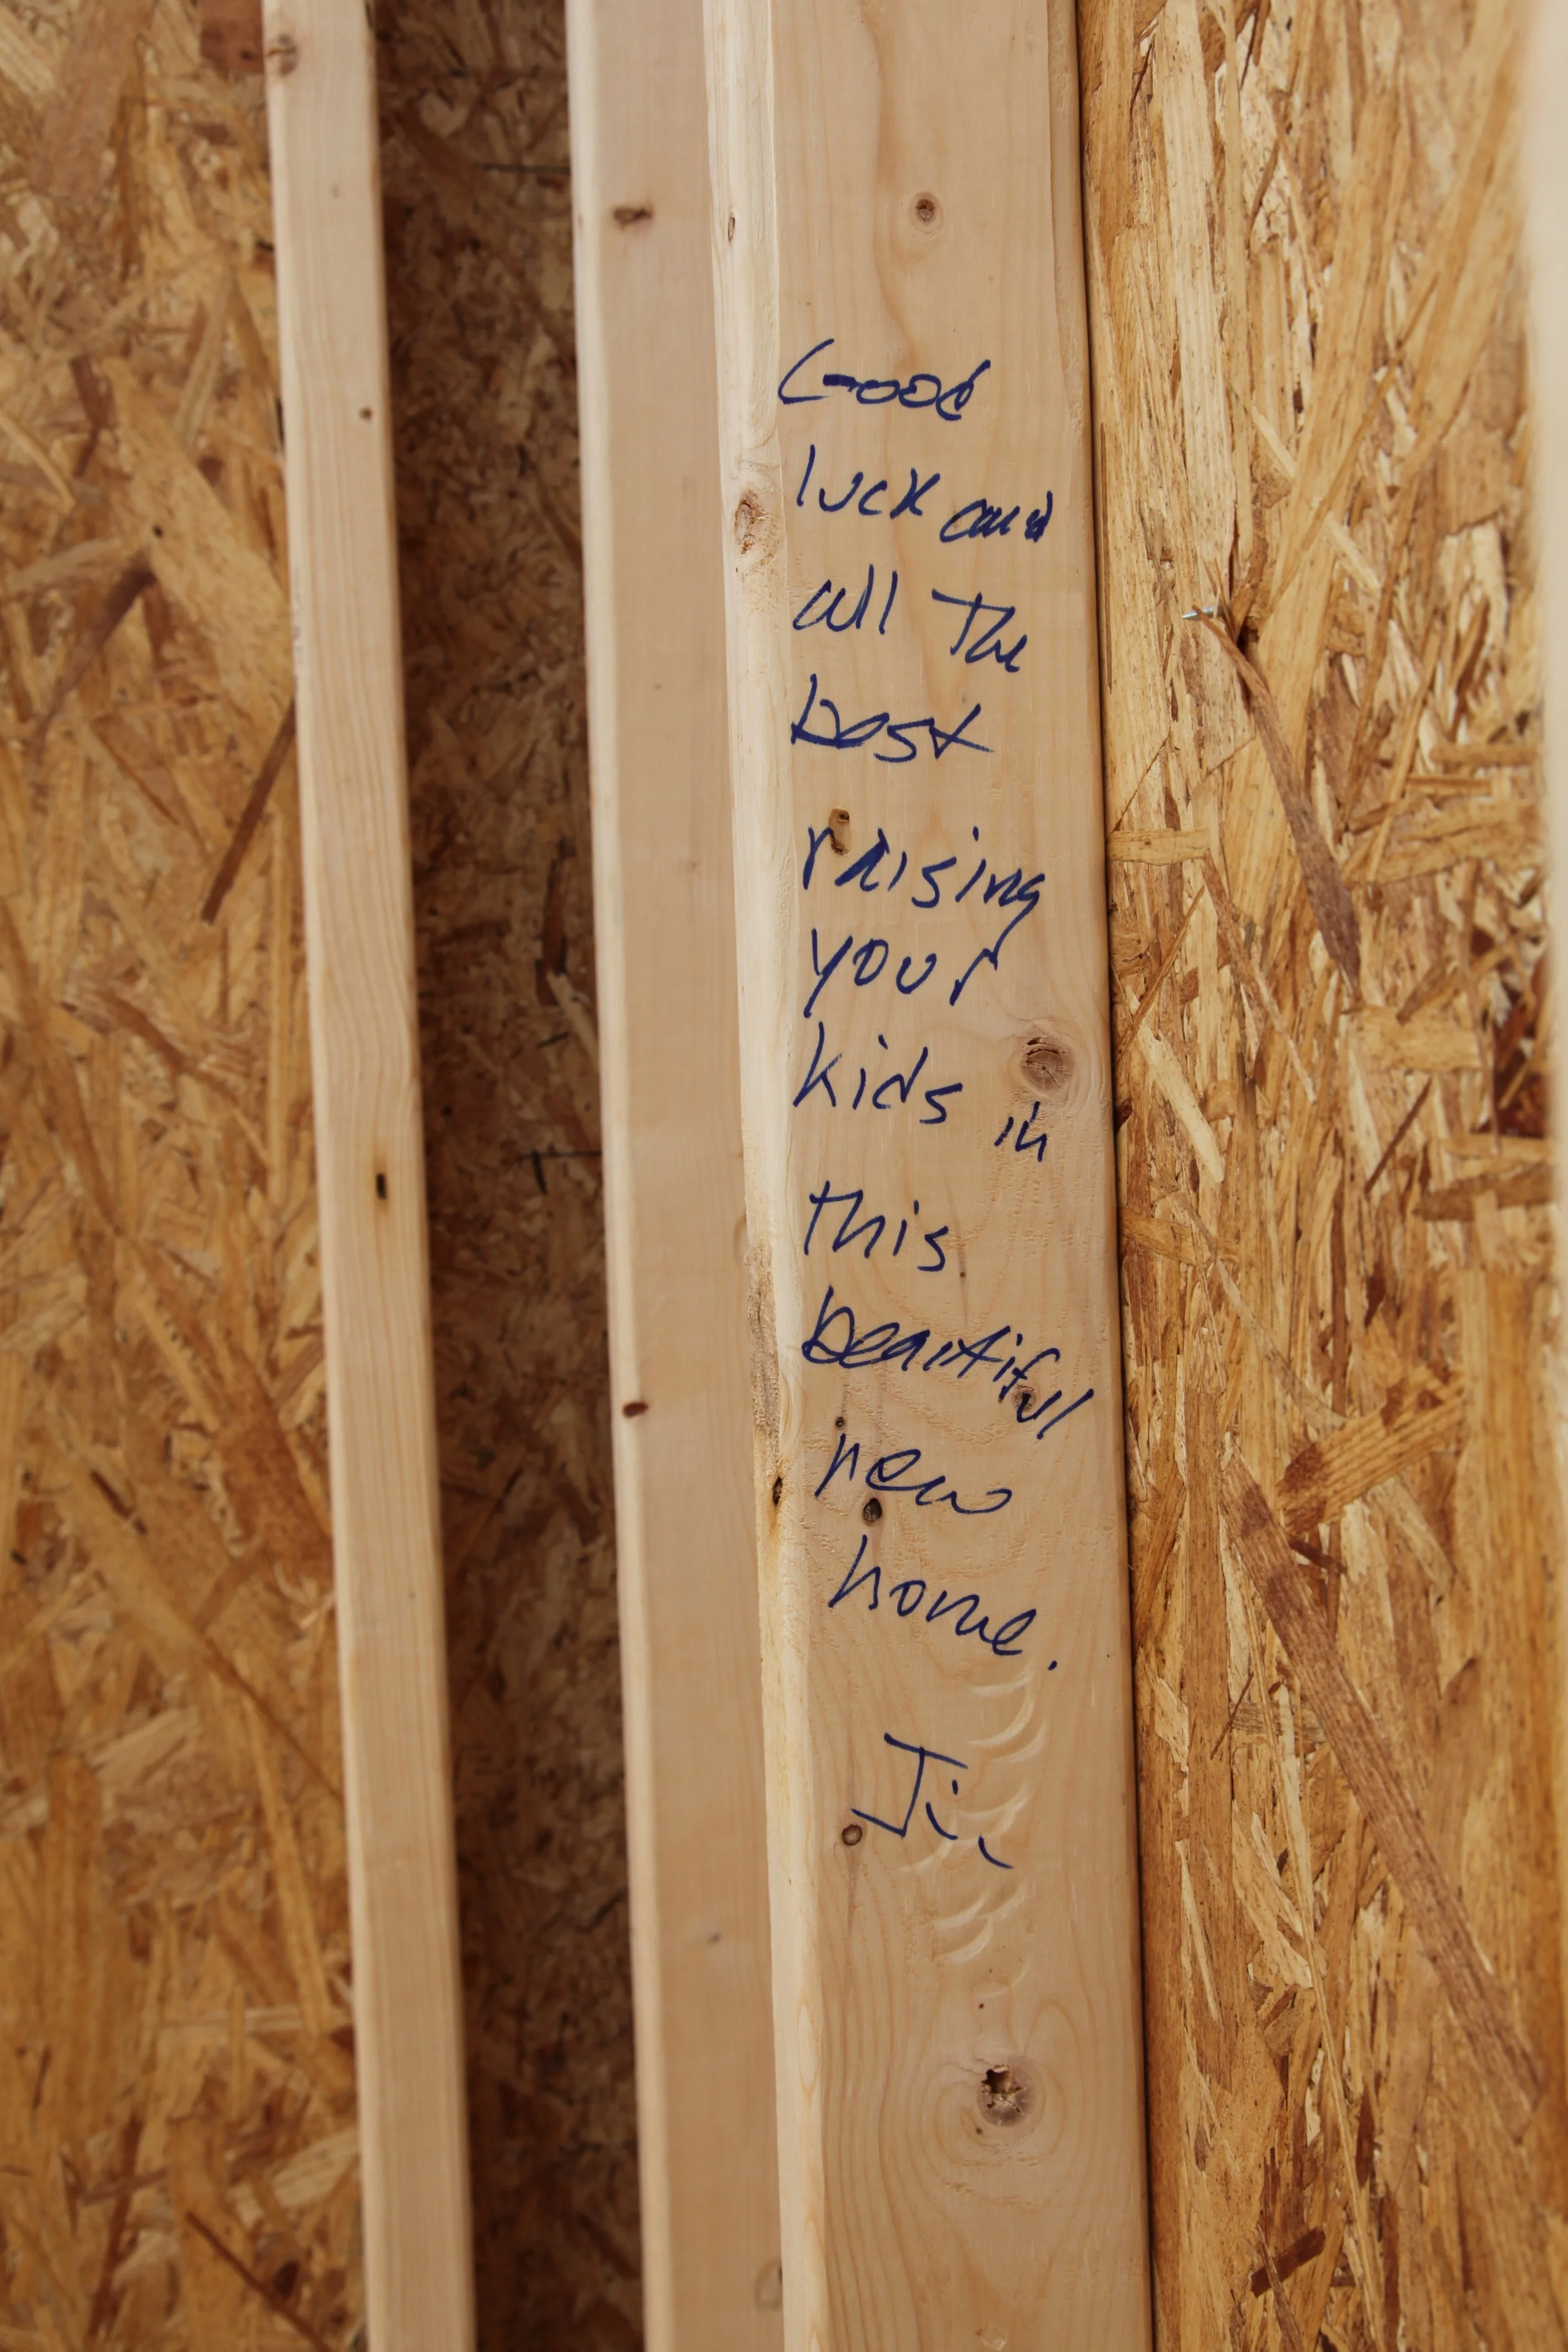 Good
luck and
all The
best
raising
your
kids in
this
beautiful
new
home.